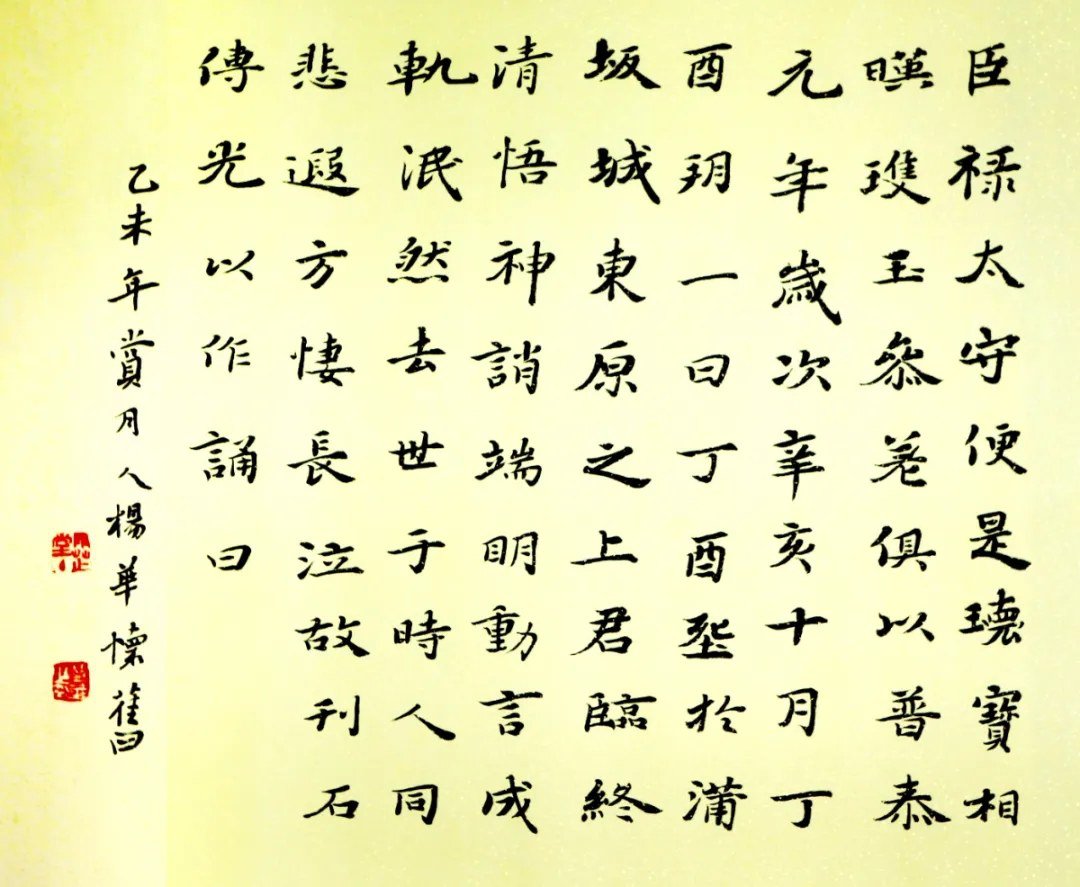 臣祿太守便是瓌寶相
暎瓊玉參差俱以普泰
元年歲次辛亥十月丁
酉朔一日丁酉塟於蒲
坂城東原之上君臨終
清悟神誚端明動言成
軌泯然去世于時人同
悲遐方悽長泣故刊石
傳光以作誦曰
乙未年賞月人楊華懷舊